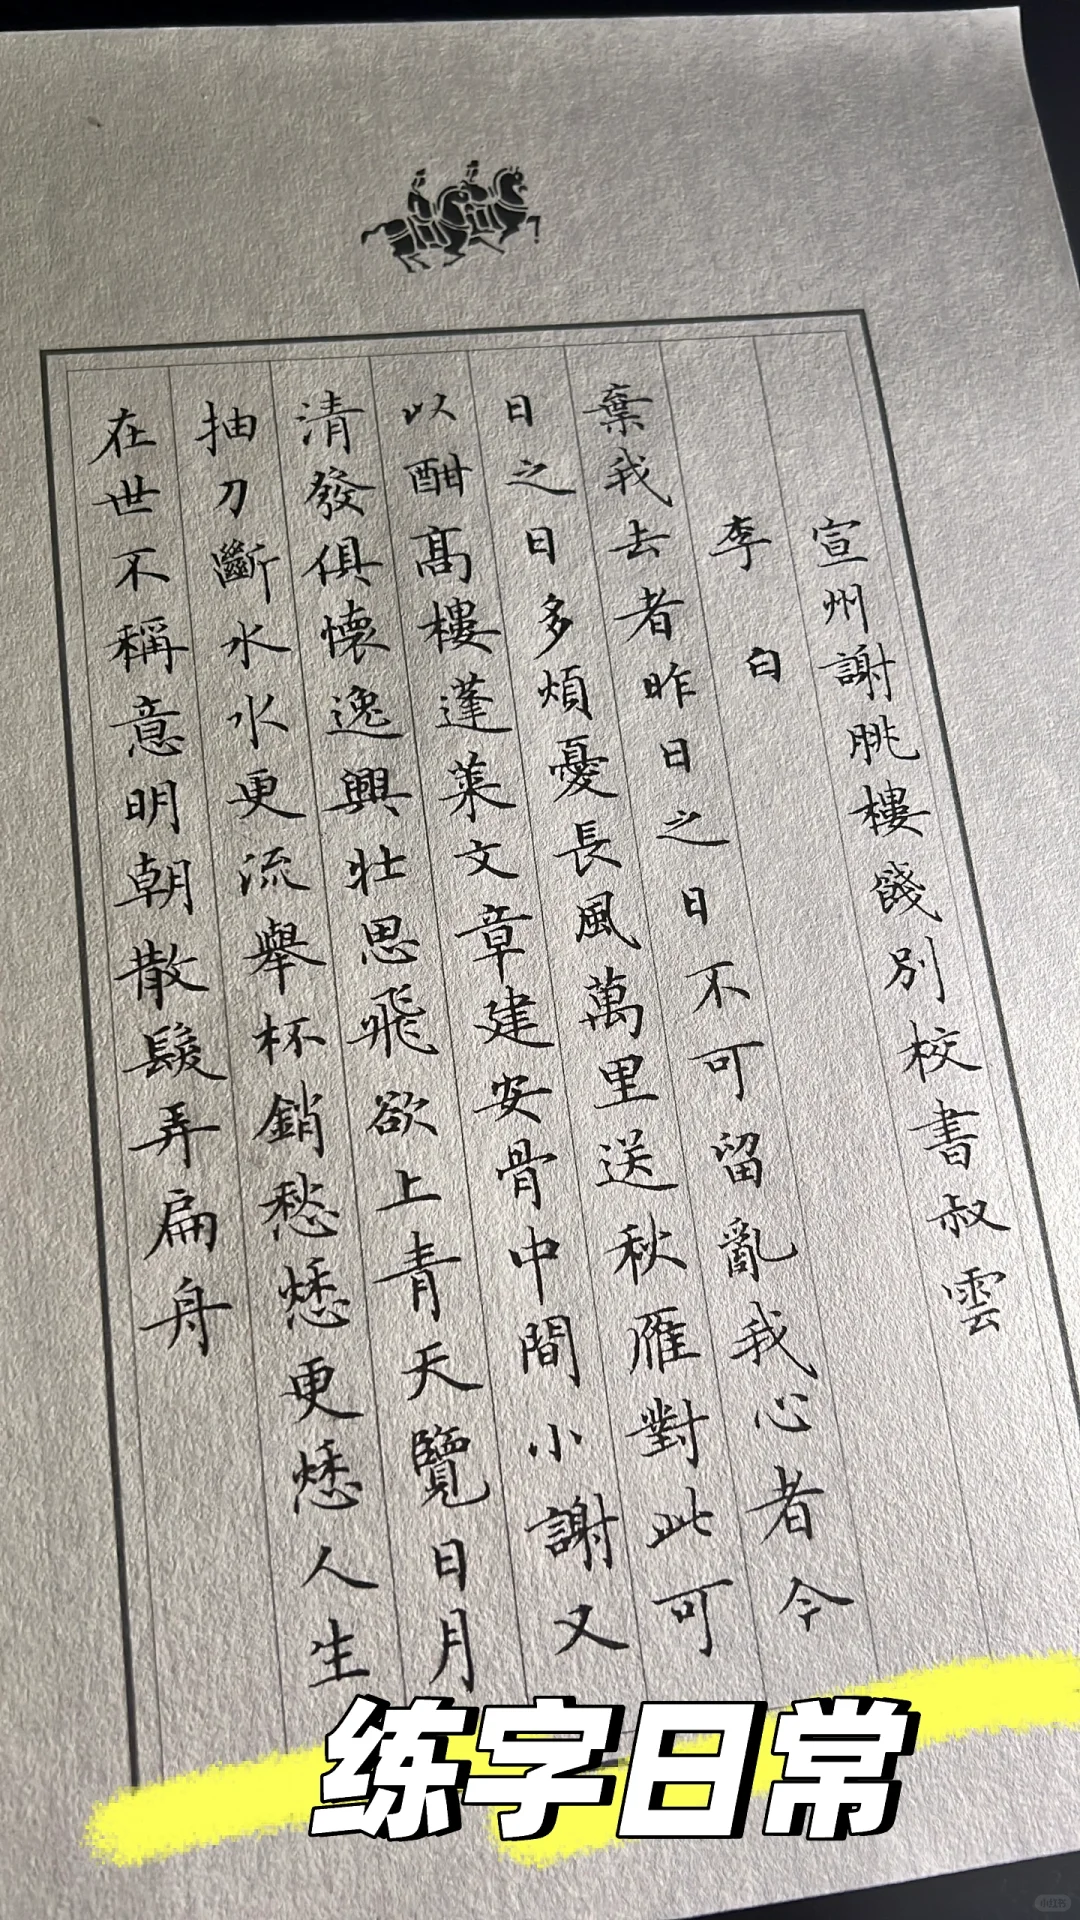 宣州謝朓樓餞別校書叔雲
李白
棄我去者昨日之日不可留亂我心者今
日之日多煩憂長風萬里送秋雁對此可
以酣高樓蓬萊文章建安骨中間小謝又
清發俱懷逸興壯思飛欲上青天覽日月
抽刀斷水水更流舉杯銷愁愁更愁人生
在世不稱意明朝散髮弄扁舟
练字日常
小红书